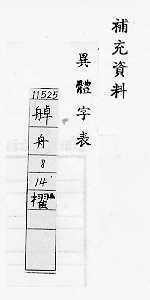 補充資料
異體字表
11525
䑲
舟
8
14
櫂